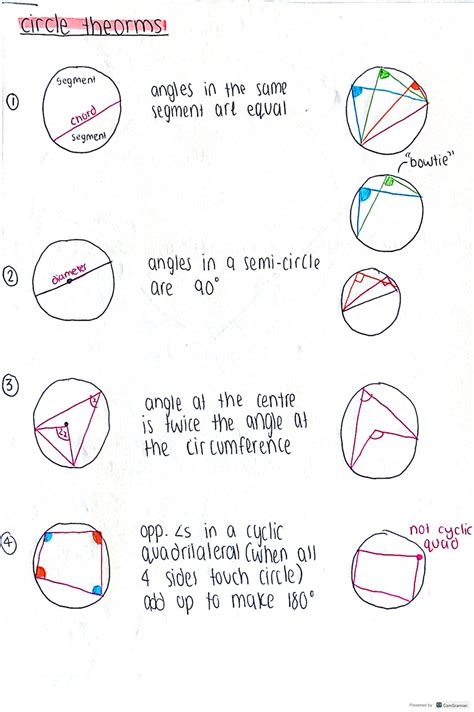 circle theorms
①
segment
chord
segment
angles in the same
segment are equal
"bowtie"
②
diameter
angles in a semi-circle
are 90°
③
angle at the centre
is twice the angle at
the circumference
④
opp. ∠s in a cyclic
quadrilateral (when all
4 sides touch circle)
add up to make 180°
not cyclic
quad
Powered by CamScanner